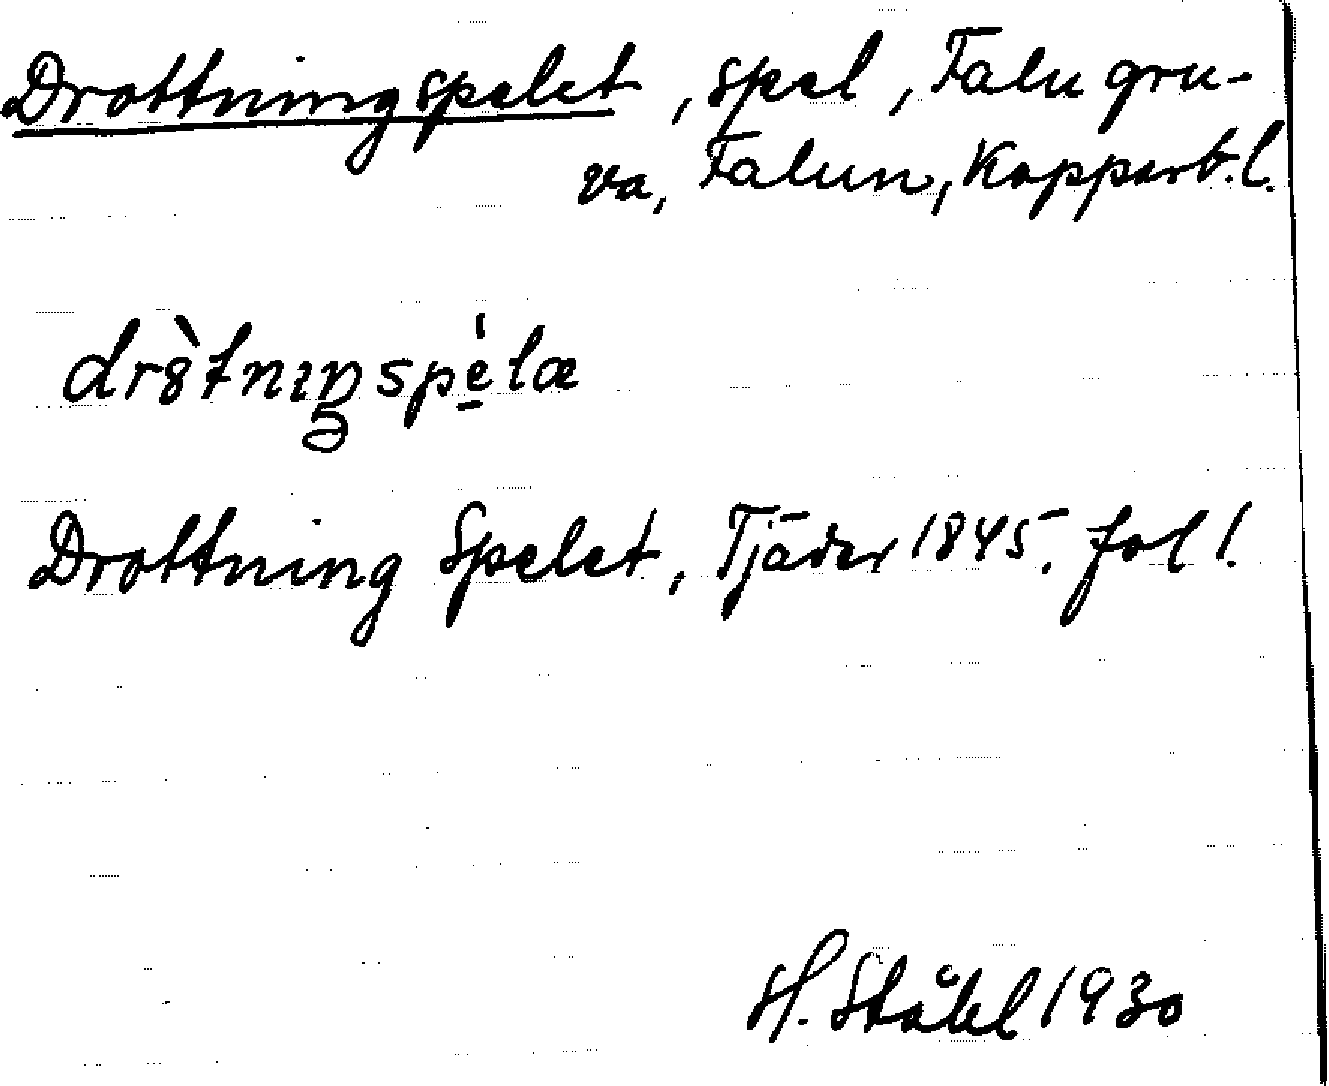 Drottningspelet, spel, Falu gru-
va, Falun, Kopparb. l.
Drottning Spelet, Tjäder 1845. fol 1.
H. Ståhl 1930